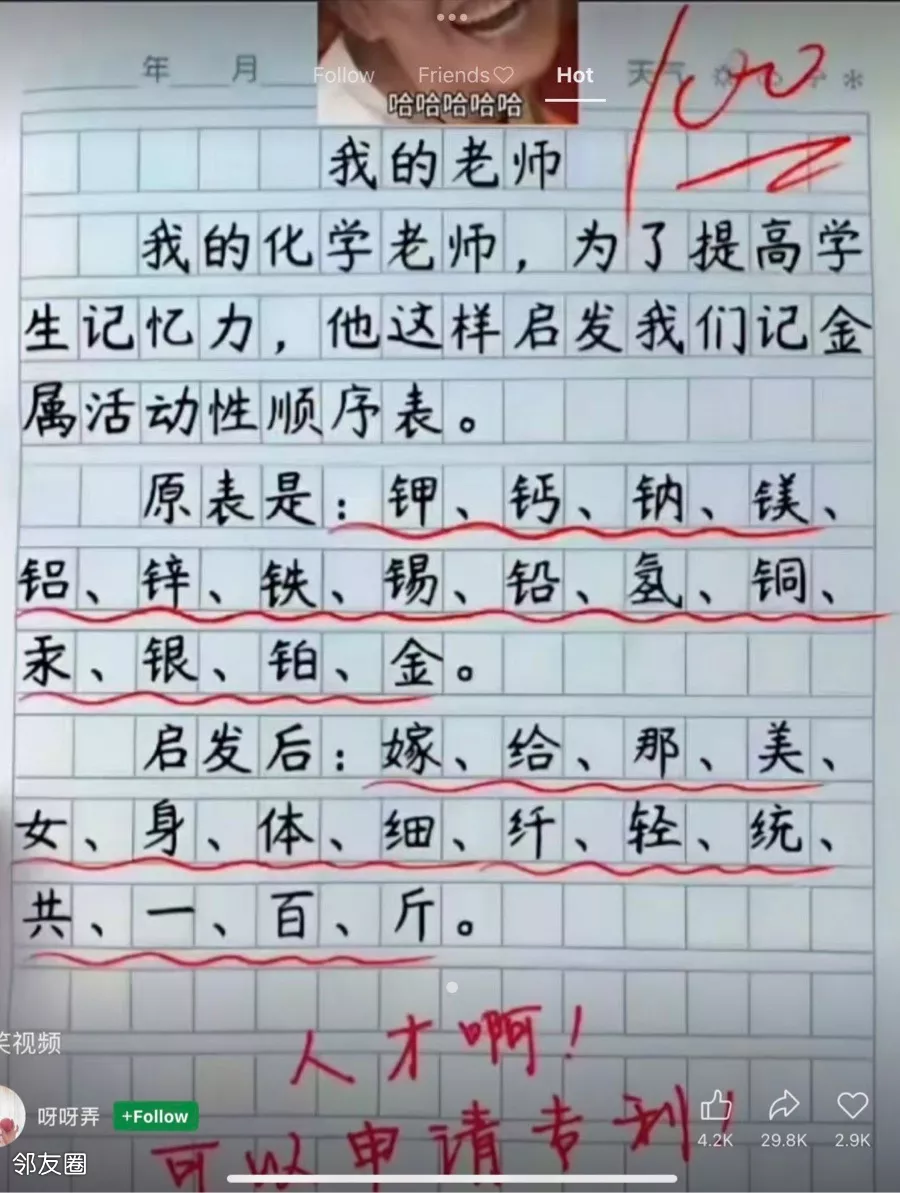 年 月
Follow Friends♡ Hot
天气
哈哈哈哈哈
100
我的老师
我的化学老师，为了提高学
生记忆力，他这样启发我们记金
属活动性顺序表。
原表是：钾、钙、钠、镁、
铝、锌、铁、锡、铅、氢、铜、
汞、银、铂、金。
启发后：嫁、给、那、美、
女、身、体、细、纤、轻、统、
共、一、百、斤。
人才啊！
笑视频
呀呀弄 +Follow
可以申请专利！
4.2K 29.8K 2.9K
邻友圈